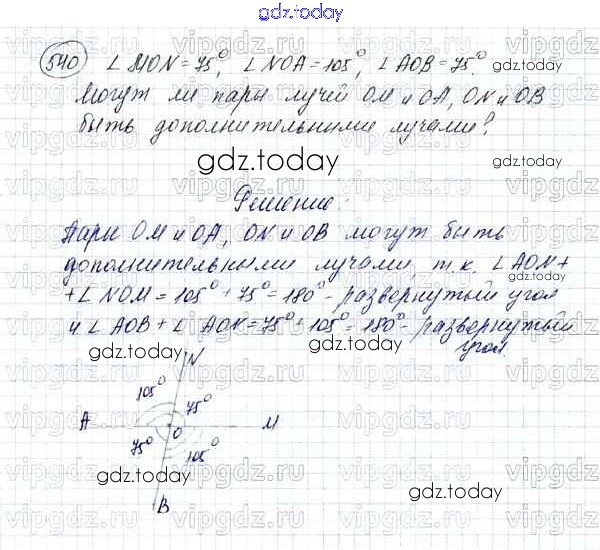 gdz.today
540 ∠MON=75°, ∠NOA=105°, ∠AOB=75°.
gdz.today
Могут ли пары лучей OM и OA, ON и OB
быть дополнительными лучами?
gdz.today
gdz.today
Решение:
Пары OM и OA, ON и OB могут быть
дополнительными лучами, т.к. ∠AON+
gdz.today
+∠NOM=105°+75°=180°-развернутый угол
и ∠AOB+∠AOK=75°+105°=180°-развернутый
угол.
gdz.today
gdz.today
N
105°
75°
A
O
M
75°
105°
B
gdz.today
gdz.today
vipgdz.ru